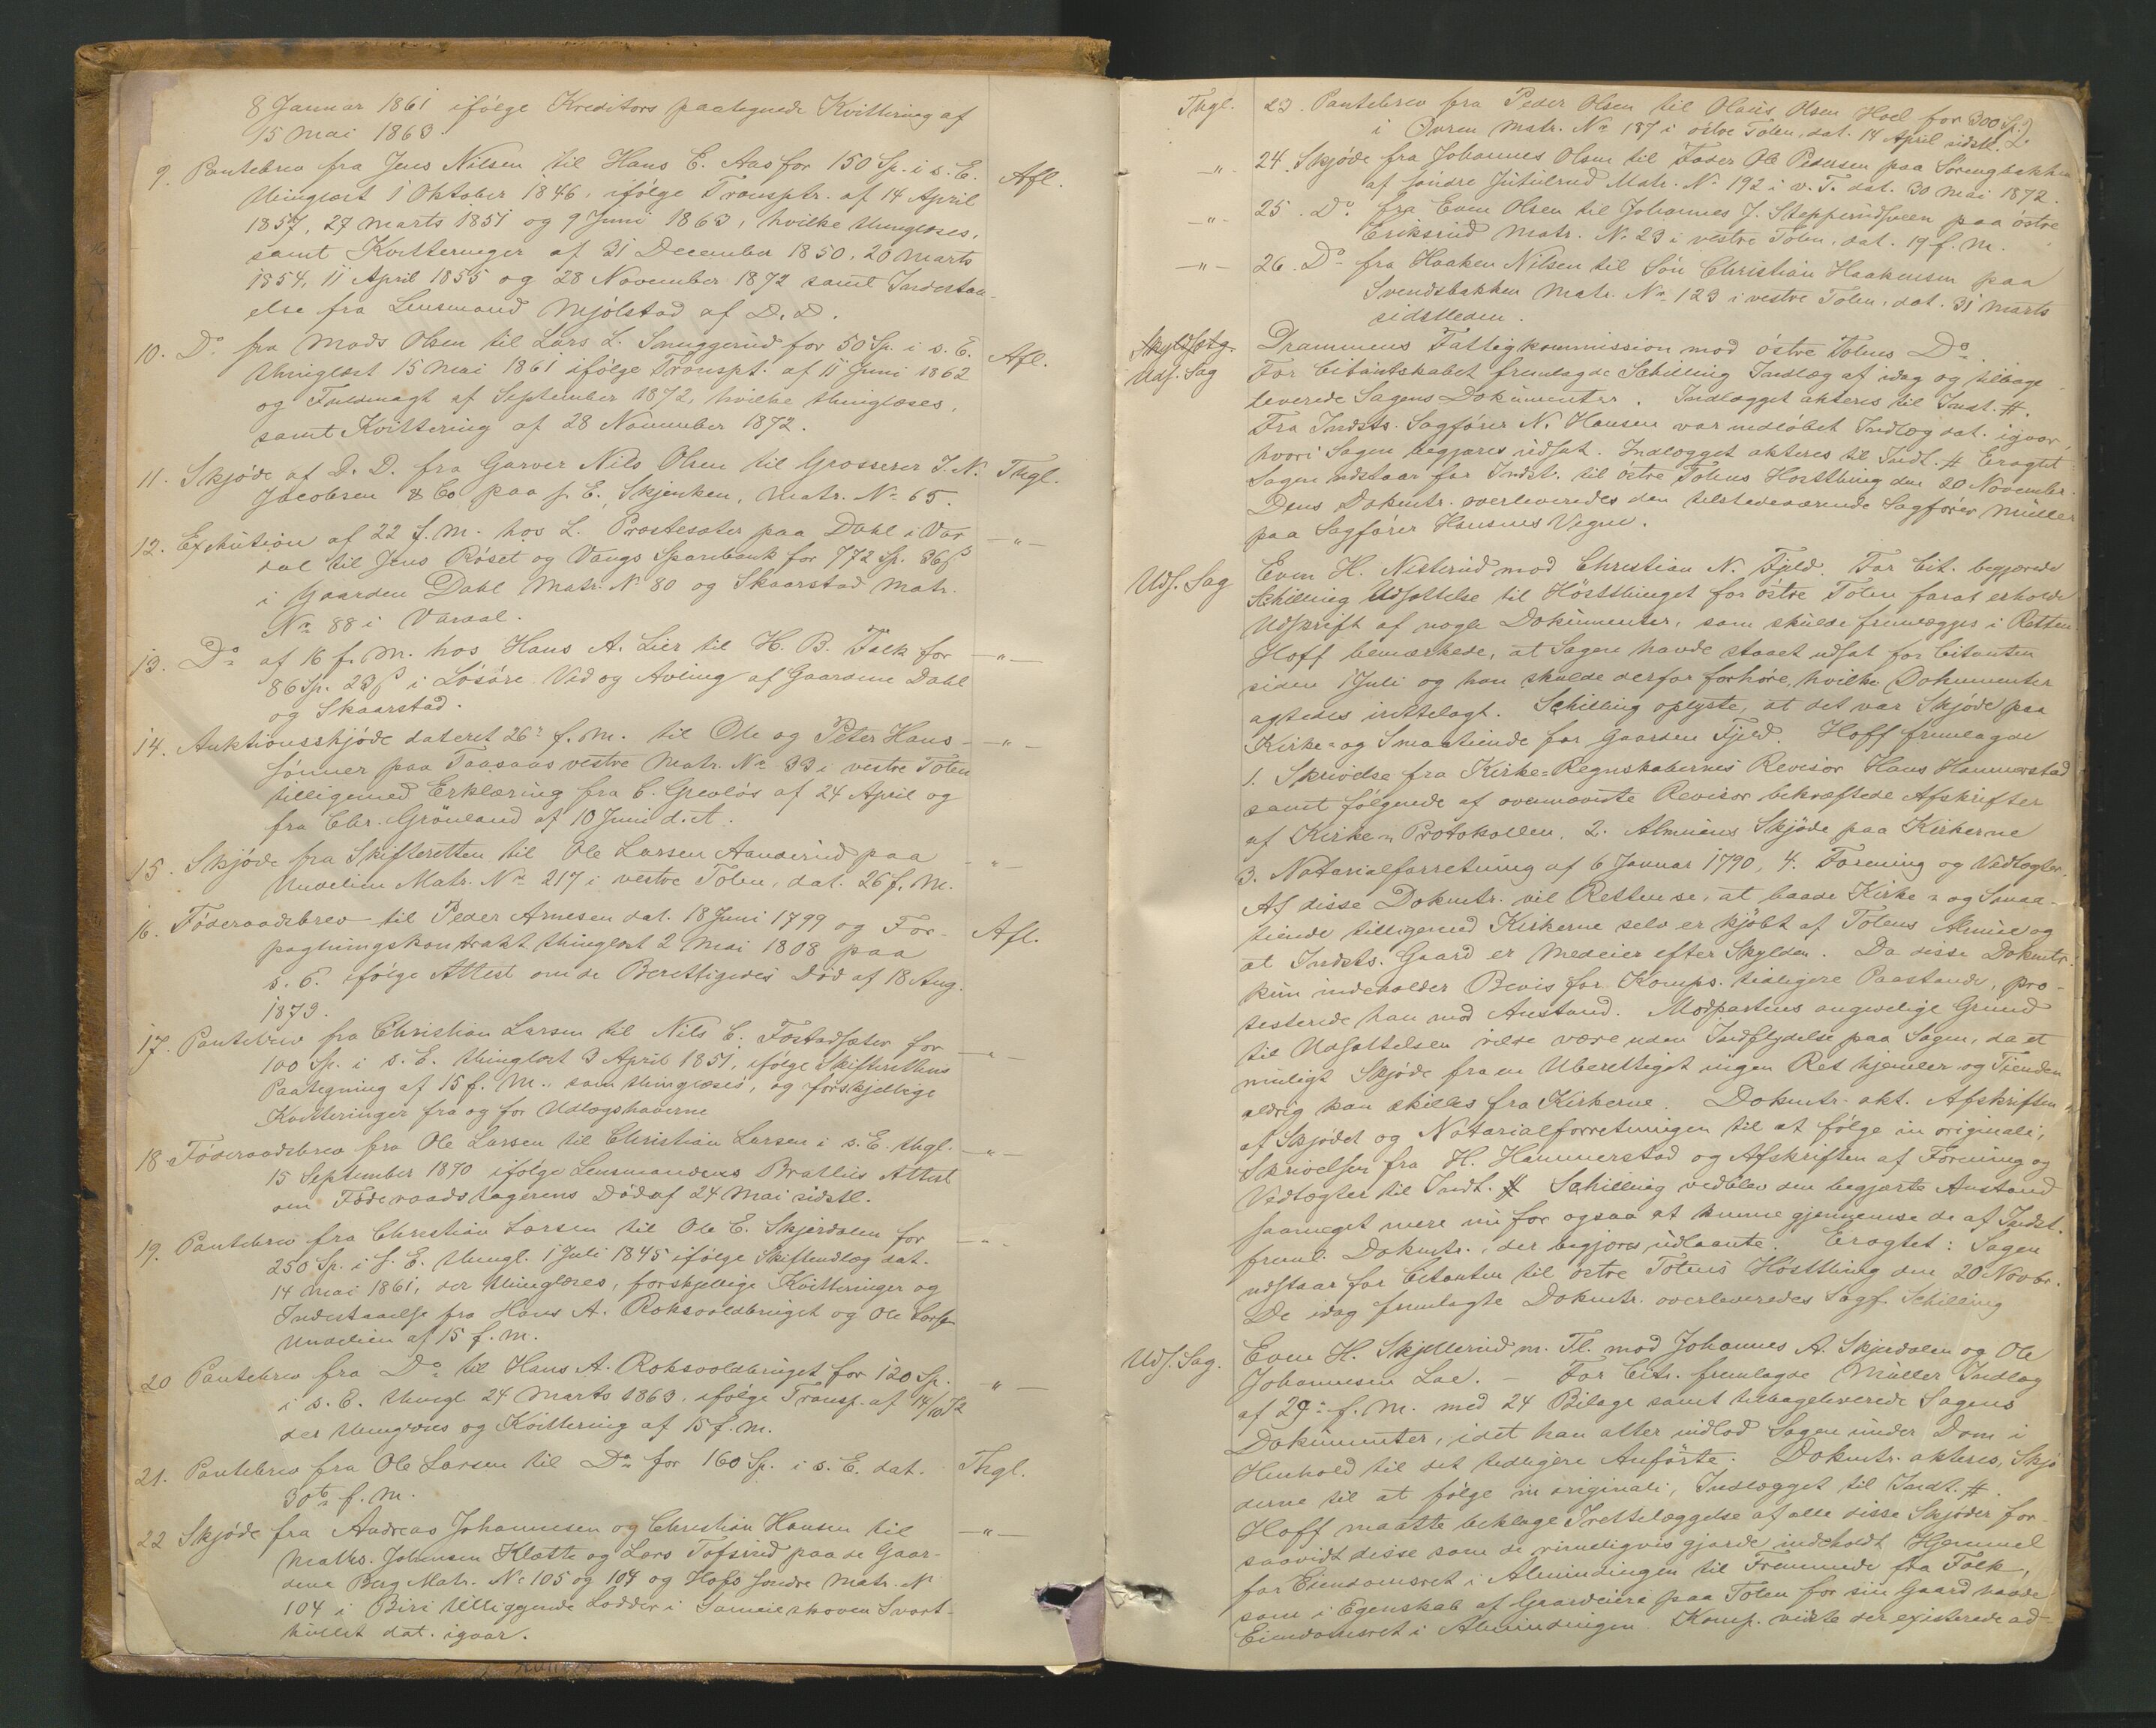 8 Januar 1861 ifølge Kreditors paategnede Kvittering af
15 Mai 1863.
9. Pantebrev fra Jens Nilsen til Hans E. Aas for 150 Sp. i s. E. Afl.
thinglæst 1 Oktober 1846, ifølge Transptr. af 14 April
1857, 27 Marts 1851 og 9 Juni 1863, hvilke thinglæses,
samt Kvitteringer af 31 December 1850, 20 Marts
1854, 11 April 1855 og 28 November 1872 samt Indestaa-
else fra Lensmand Mjølstad af D. D.
10. Do fra Mads Olsen til Lars L. Smuggerud for 50 Sp. i s. E. Afl.
thinglæst 15 Mai 1861 ifølge Transpt. af 11 Juni 1862
og Fuldmagt af September 1872, hvilke thinglæses,
samt Kvittering af 28 November 1872.
11. Skjøde af D. D. fra Garver Nils Olsen til Grosserer J. N. Thgl.
Jacobsen & Co paa s. E. Skjenken, Matr. No 65.
12. Exekution af 22 f. M. hos L. Præstesæter paa Dahl i Var- -"-
dal til Jens Røset og Vangs Sparebank for 772 Sp. 36 ß
i Gaarden Dahl Matr. No 80 og Skaarstad Matr.
No 88 i Vardal.
13. Do af 16 f. M. hos Hans A. Lier til H. B. Falk for -"-
86 Sp. 23 ß i Løsøre Ved og Avling af Gaardene Dahl
og Skaarstad.
14. Auktionsskjøde dateret 26de f. M. til Ole og Peter Hans- -"-
sønner paa Taasaas vestre Matr. No 33 i vestre Toten
tilligemed Erklæring fra C. Grevløs af 24 April og
fra Chr. Grönland af 10 Juni d. A.
15. Skjøde fra Skifteretten til Ole Larsen Aanderud paa -"-
Undelien Matr. No 217 i vestre Toten, dat. 26 f. M.
16. Føderaadsbrev til Peder Arnesen dat. 18 Juni 1799 og For- Afl.
pagtningskontrakt thinglæst 2 Mai 1808 paa
s. E. ifølge Attest om de Berettigedes Død af 18 Aug.
1873.
17. Pantebrev fra Christian Larsen til Nils C. Fostadsæter for -"-
100 Sp. i s. E. thinglæst 3 April 1851, ifølge Skifterettens
Paategning af 15 f. M., som thinglæses, og forskjellige
Kvitteringer fra og for Udlægshaverne
18. Føderaadsbrev fra Ole Larsen til Christian Larsen i s. E. thgl. -"-
15 September 1870 ifølge Lensmandens Brattlis Attest
om Føderaadstagerens Død af 24 Mai sidstl.
19. Pantebrev fra Christian Larsen til Ole E. Skjerdalen for -"-
250 Sp. i s. E. thingl. 1 Juli 1845 ifølge Skifteudlæg dat.
14 Mai 1861, der thinglæses, forskjellige Kvitteringer og
Indestaaelse fra Hans A. Roksvoldbruget og Ole Larsen
Undelien af 15 f. M.
20 Pantebrev fra Do til Hans A. Roksvoldbruget for 120 Sp. -"-
i s. E. thingl. 24 Marts 1863. ifølge Transp. af 14/10 72
der thinglæses og Kvittering af 15 f. M.
21. Pantebrev fra Ole Larsen til Do for 160 Sp. i s. E. dat. Thgl.
30te f. M.
22 Skjøde fra Andreas Johannesen og Christian Hansen til -"-
Maths. Johansen Klætte og Lars Tofsrud paa de Gaar-
dene Berg Matr. No 105 og 104 og Hofs søndre Matr. No
104 i Biri tilliggende Lodder i Sameieskoven Svart-
hullet dat. igaar.
Thgl. 23. Pantebrev fra Peder Olsen til Olaus Olsen Hoel for 300 Sp.
i Øvren Matr. No 187 i østre Toten, dat. 14 April sidstl.
-"- 24. Skjøde fra Johannes Olsen til Fader Ole Pedersen paa Sørengbakken
af søndre Jutulrud Matr. No 192 i v. T. dat. 30 Mai 1872.
-"- 25. Do fra Even Olsen til Johannes J. Stepperudsveen paa østre
Eriksrud Matr. No 23 i vestre Toten, dat. 19 f. M.
-"- 26. Do fra Haaken Nilsen til Søn Christian Haakensen paa
Svendsbakken Matr. No 123 i vestre Toten, dat. 31 Marts
sidstleden.
Skyldsætg. Drammens Fattigkommission mod østre Totens Do.
Uds. Sag For Citantskabet fremlagde Schilling Indlæg af idag og tilbage-
leverede Sagens Dokumenter. Indlægget akteres til Indt. #.
Fra Indsts. Sagfører N. Hansen var indløbet Indlæg dat. igaar,
hvori Sagen begjæres udsat. Indlægget akteres til Indt. # Eragtet:
Sagen udstaar for Indst. til østre Totens Hostthing den 20 November.
Dens Dokmtr. overleveredes den tilstedeværende Sagfører Müller
paa Sagfører Hansens Vegne.
Uds. Sag Even H. Nisterud mod Christian N. Fjeld. For Cit. begjærede
Schilling Udsættelse til Høstthinget for østre Toten for at erholde
Udskrift af nogle Dokumenter, som skulde fremlægges i Retten
Hoff bemærkede, at Sagen havde staaet udsat for Citanten
siden 1 Juli og han skulde derfor forhøre, hvilke Dokumenter
agtedes irettelagt. Schilling oplyste, at det var Skjøde paa
Kirke- og Smaatiende for Gaarden Fjeld. Hoff fremlagde
1. Skrivelse fra Kirke-Regnskabernes Revisor Hans Hammerstad
samt følgende af ovennævnte Revisor bekræftede Afskrifter
af Kirke-Protokollen. 2. Almuens Skjøde paa Kirkerne
3. Notarialforretning af 6 Januar 1790, 4. Forening og Vedtægter.
Af disse Dokmtr. vil Retten se, at baade Kirke- og Smaa-
tiende tilligemed Kirkerne selv er kjøbt af Totens Almue og
at Indsts. Gaard er Medeier efter Skylden. Da disse Dokmtr.
kun indeholder Bevis for Komps. tidligere Paastande, pro-
testerede han mod Anstand. Modpartens angivelige Grund
til Udsættelsen vilde være uden Indflydelse paa Sagen, da et
muligt Skjøde fra en Uberettiget ingen Ret hjemler og Tienden
aldrig kan skilles fra Kirkerne. Dokmtr. akt. Afskriften
af Skjødet og Notarialforretningen til at følge in originali,
Skrivelsen fra H. Hammerstad og Afskriften af Forening og
Vedtægter til Indt. # Schilling vedblev den begjærte Anstand
saameget mere nu for ogsaa at kunne gjennemse de af Indst.
freml. Dokmtr., der begjæres udlaante. Eragtet: Sagen
udstaar for Citanten til østre Totens Høstthing den 20 Novbr.
De idag fremlagte Dokmtr. overleveredes Sagf. Schilling
Uds. Sag. Even H. Skjellerud m. Fl. mod Johannes A. Skjerdalen og Ole
Johannesen Lae. – For Citr. fremlagde Müller Indlæg
af 29de f. M. med 24 Bilage samt tilbageleverede Sagens
Dokumenter, idet han atter indlod Sagen under Dom i
Henhold til det tidligere Anførte. Dokmtr. akteres, Skjø-
derne til at følge in originali, Indlægget til Indt. #.
Hoff maatte beklage Irettelæggelse af alle disse Skjøder for-
saavidt disse som de rimeligvis gjorde, indeholdt Hjemmel
for Eiendomsret i Almindingen til Fremmede fra Folk,
som i Egenskab af Gaardeiere paa Toten for sin Gaard havde
Eiendomsret i Almindingen. Komp. vidste der existerede ad-